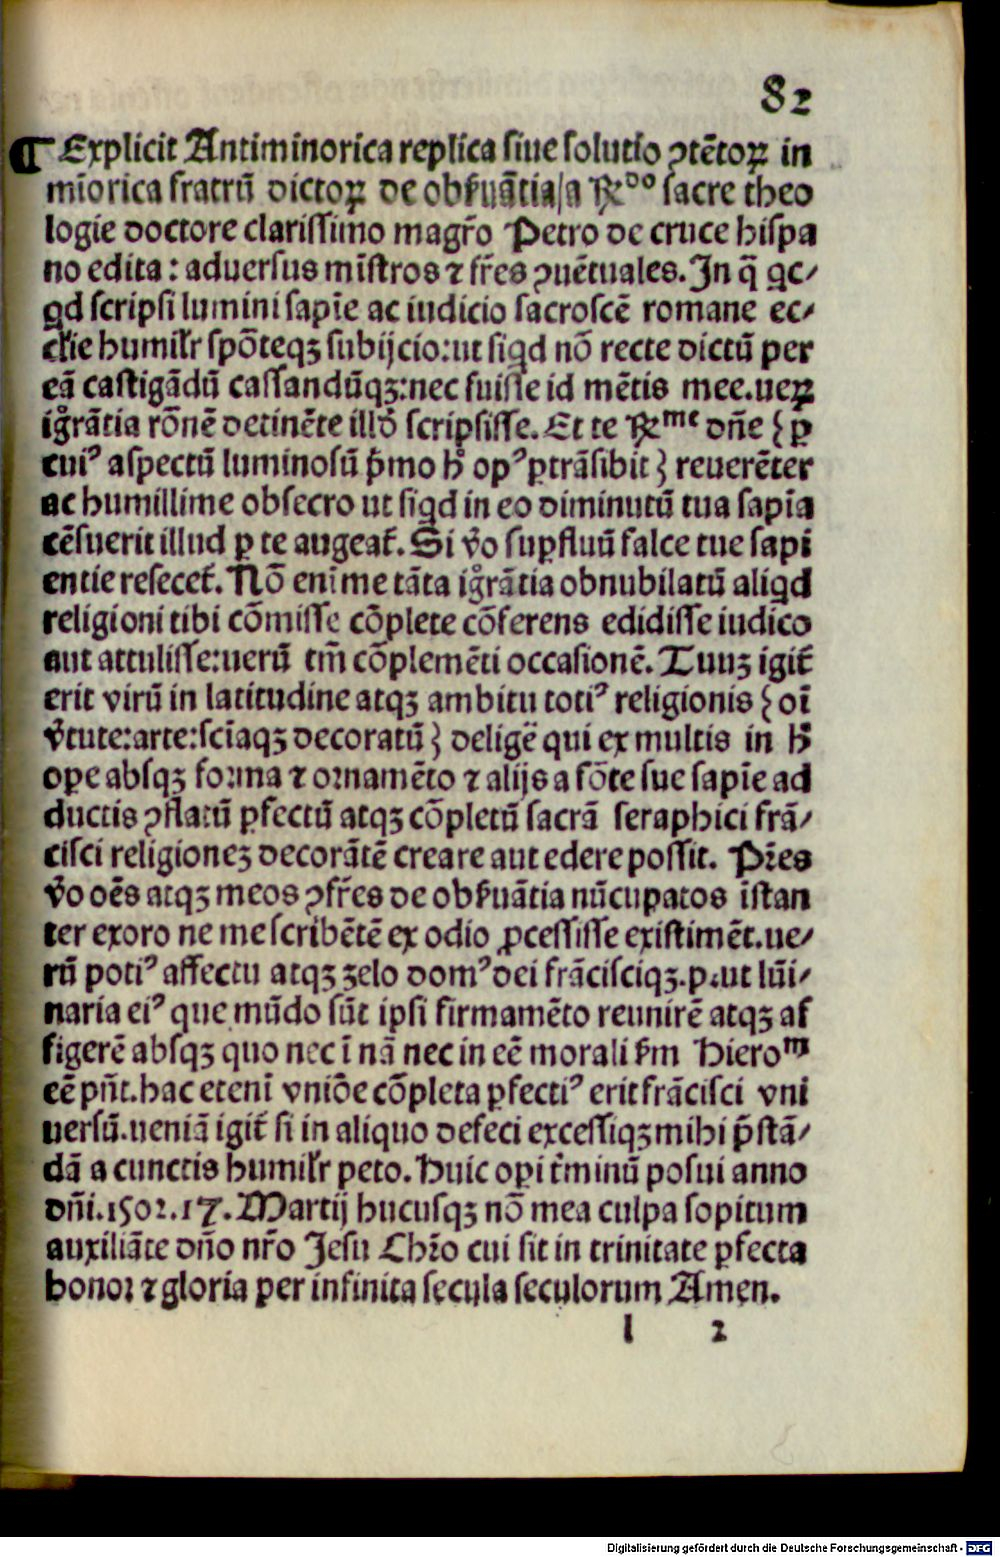 82
¶ Explicit Antiminorica replica siue solutio ꝯtētoꝝ in
mīorica fratrū dictoꝝ de obẜuātia/a R̄ᵈᵒ sacre theo
logie doctore clarissimo magr̄o Petro de cruce hispa
no edita: aduersus mīstros ⁊ fr̄es ꝯuētuales. In q̄ qc⸗
qd scripsi lumini sapīe ac iudicio sacroscē romane ec⸗
cl̄ie humilr̄ spōteqꝫ subijcio: ut siqd nō recte dictū per
eā castigādū cassandūqꝫ: nec fuisse id mētis mee. ueꝝ
igr̄ātia rōnē detinēte illd̄ scripsisse. Et te R̄ᵐᵉ dn̄e { ꝑ
cuiꝰ aspectū luminosū p̄mo h̄ opꝰ ꝑtrāsibit } reuerēter
ac humillime obsecro ut siqd in eo diminutū tua sapīa
cēsuerit illud ꝑ te augeat̄. Si v̄o suꝑfluū falce tue sapi
entie resecet̄. Nō enī me tāta igr̄ātia obnubilatū aliqd
religioni tibi cōmisse cōplete cōferens edidisse iudico
aut attulisse: uerū tm̄ cōplemēti occasionē. Tuuꝫ igit̄
erit virū in latitudine atqꝫ ambitu totiꝰ religionis { oī
v̄tute: arte: scīaqꝫ decoratū } deligē qui ex multis in h̄
ope absqꝫ forma ⁊ ornamēto ⁊ alijs a fōte sue sapīe ad
ductis ꝯflatū ꝑfectū atqꝫ cōpletū sacrā seraphici frā⸗
cisci religioneꝫ decorātē creare aut edere possit. Pr̄es
v̄o oēs atqꝫ meos ꝯfr̄es de obẜuātia nūcupatos īstan
ter exoro ne me scribētē ex odio ꝓcessisse existimēt. ue⸗
rū potiꝰ affectu atqꝫ zelo domꝰ dei frāciscіqꝫ. put lūi⸗
naria eiꝰ que mūdo sūt ipsi firmamēto reunirē atqꝫ af
figerē absqꝫ quo nec ī nā nec in eē morali ẜm Hieroᵐ
eē pn̄t. hac etenī vniōe cōpleta ꝑfectiꝰ erit frācisci vni
uersū. ueniā igit̄ si in aliquo defeci excessiqꝫ mihi p̄stā⸗
dā a cunctis humilr̄ peto. Huic opi t̄minū posui anno
dn̄i. 1502. 17. Martij hucusqꝫ nō mea culpa sopitum
auxiliāte dn̄o nr̄o Jesu Chr̄o cui sit in trinitate ꝑfecta
honor ⁊ gloria per infinita secula seculorum Amen.
l 2
Digitalisierung gefördert durch die Deutsche Forschungsgemeinschaft - DFG